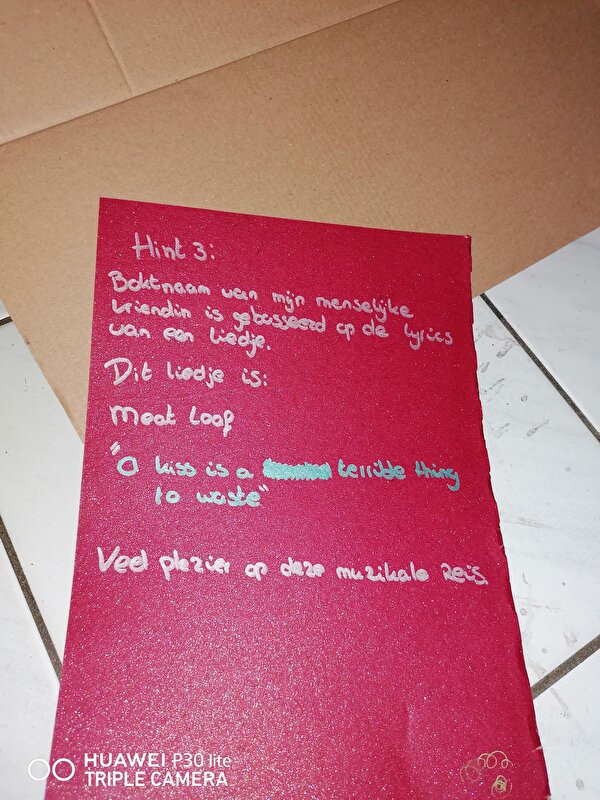 Hint 3:
Bohtnaam van mijn menselijke
vriendin is gebasseerd op de lyrics
van een liedje.
Dit liedje is:
Meat Loaf
"O kiss is a terrible thing
to waste"
Veel plezier op deze muzikale Reis
HUAWEI P30 lite
TRIPLE CAMERA